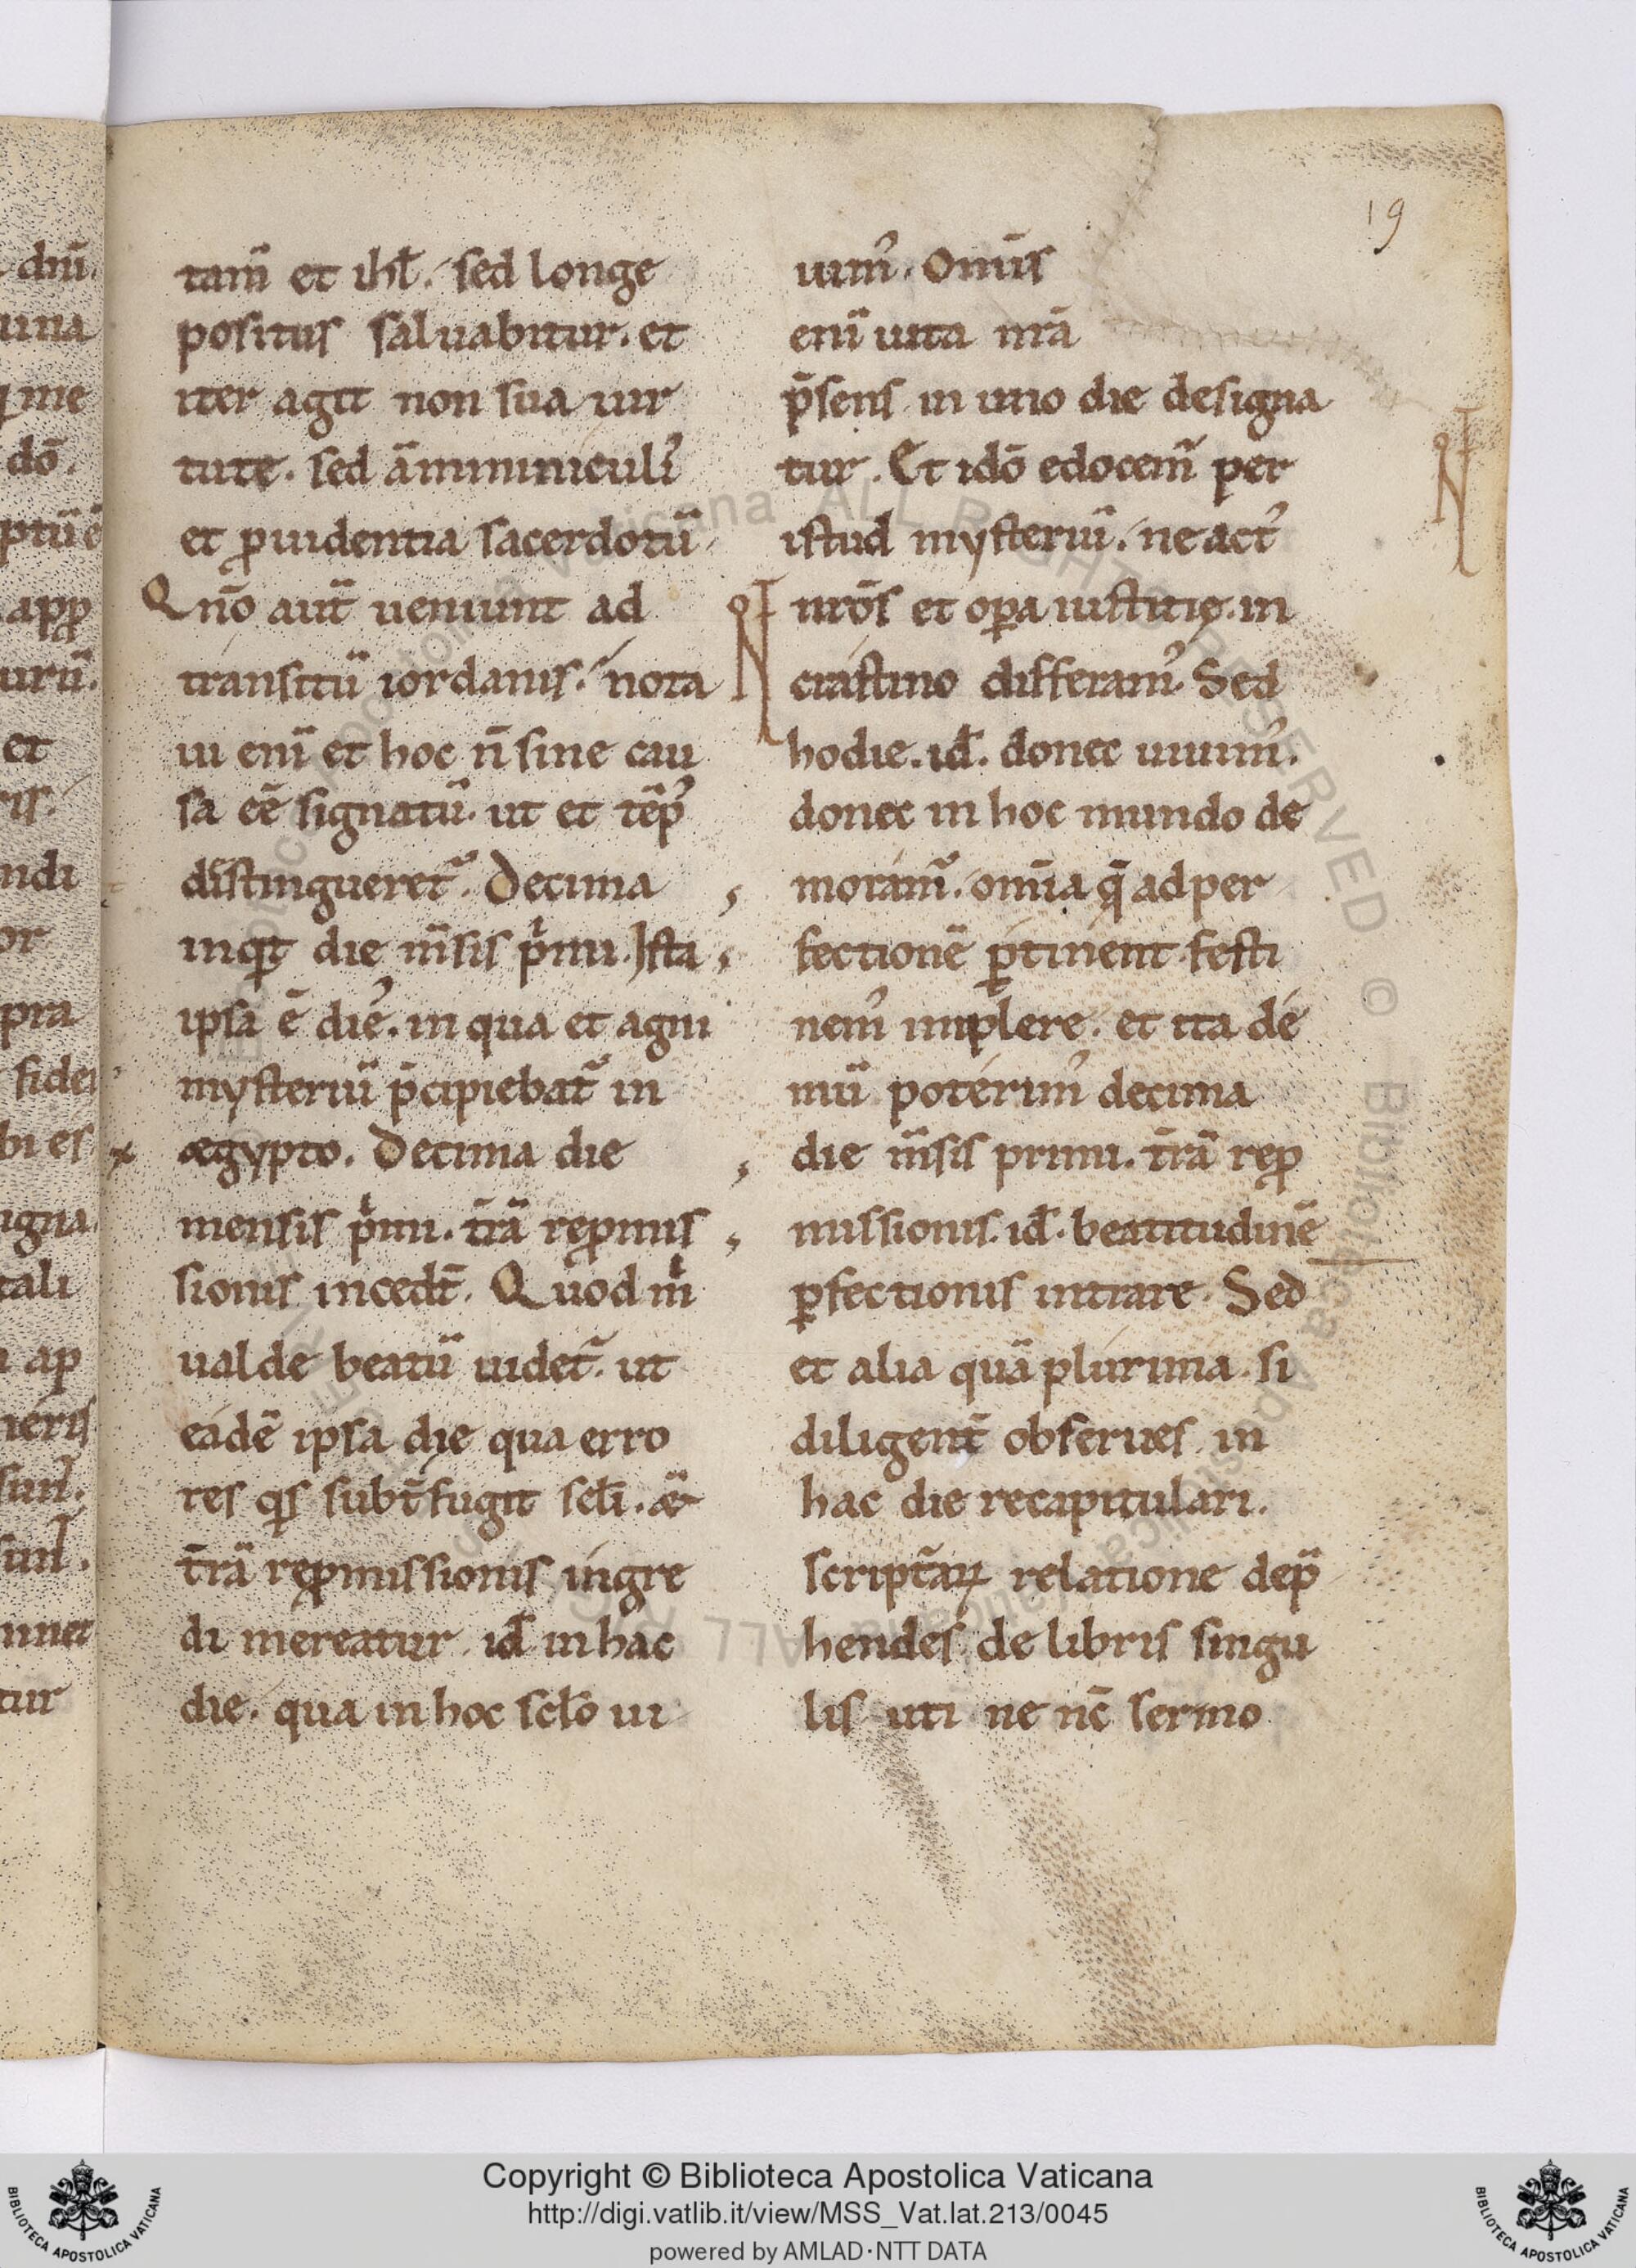 19
tam̄ et ihl̄. sed longe
positus saluabitur. et
iter agit non sua uir
tute. sed āminiculi᾿
et ꝓuidentia sacerdotū
Qn̄o aut̄ ueniunt ad
transitū iordanis. nota
ui enī et hoc n̄ sine cau
sa eē signatū. ut et tēp᾿
distingueret᷑. Decima
inqͥt die m̄sis pͥmi. Ista
ipsa ē die᾿. in qua et agni
mysteriū p̄cipiebat᷑ in
ægypto. Decima die
mensis pͥmi. tr̄ā reꝓmis
sionis incedt̄. Quod mͥ
ualde beatū uidet᷑. ut
eadē ipsa die qua erro
res qͥs subt̄fugit scl̄i. &
tr̄ā reꝓmissionis ingre
di mereatur. id̄ in hac
die. qua in hoc scl̄o ui
uim᾿. Omīs
enī uita nr̄a
p̄sens in uno die designa
tur. Et idō edocem᷑ per
istud mysteriū. ne act᾿
nr̄os et oꝑa iustitię. in
crastino differam᾿. Sed
hodie. id̄. donec uiuim᾿.
donec in hoc mundo de
moram᷑. om̄ia q̄ ad per
fectionē ꝑtinent festi
nem᾿ implere. et ita de
mū poterim᾿ decima
die m̄sis primi. tr̄ā reꝓ
missionis. id̄. beatitudinē
ꝑfectionis intrare. Sed
et alia quā plurima. si
diligent̄ obserues in
hac die recapitulari.
script̄aꝝ relatione dep̄
hendes de libris singu
lis uti ne nc̄ sermo
Copyright © Biblioteca Apostolica Vaticana
http://digi.vatlib.it/view/MSS_Vat.lat.213/0045
powered by AMLAD·NTT DATA
BIBLIOTECA APOSTOLICA VATICANA
BIBLIOTECA APOSTOLICA VATICANA